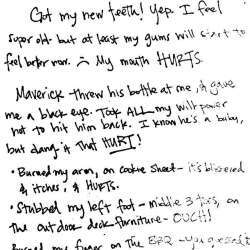 Got my new teeth! Yep. I feel
super old but at least my gums will start to
feel better now. My mouth HURTS.
Maverick threw his bottle at me, & gave
me a black eye. Took ALL my will power
not to hit him back. I know he's a baby,
but dang it that HURT!
• Burned my arm, on cookie sheet - it's blistered
& itches, & HURTS.
• Stubbed my left foot - middle 3 toes, on
the outdoor deck furniture - OUCH!
Burned my finger on the BBQ - you